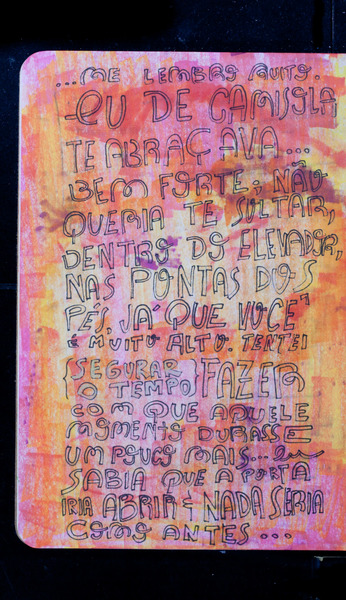 ...ME LEMBRO MUITO.
EU DE CAMISOLA
TE ABRAÇAVA...
BEM FORTE; NÃO
QUERIA TE SOLTAR,
DENTRO DO ELEVADOR,
NAS PONTAS DOS
PÉS, JÁ QUE VOCÊ
É MUITO ALTO. TENTEI
(SEGURAR O TEMPO) FAZER
COM QUE AQUELE
MOMENTO DURASSE
UM POUCO MAIS... eu
SABIA QUE A PORTA
IRIA ABRIR E NADA SERIA
COMO ANTES...